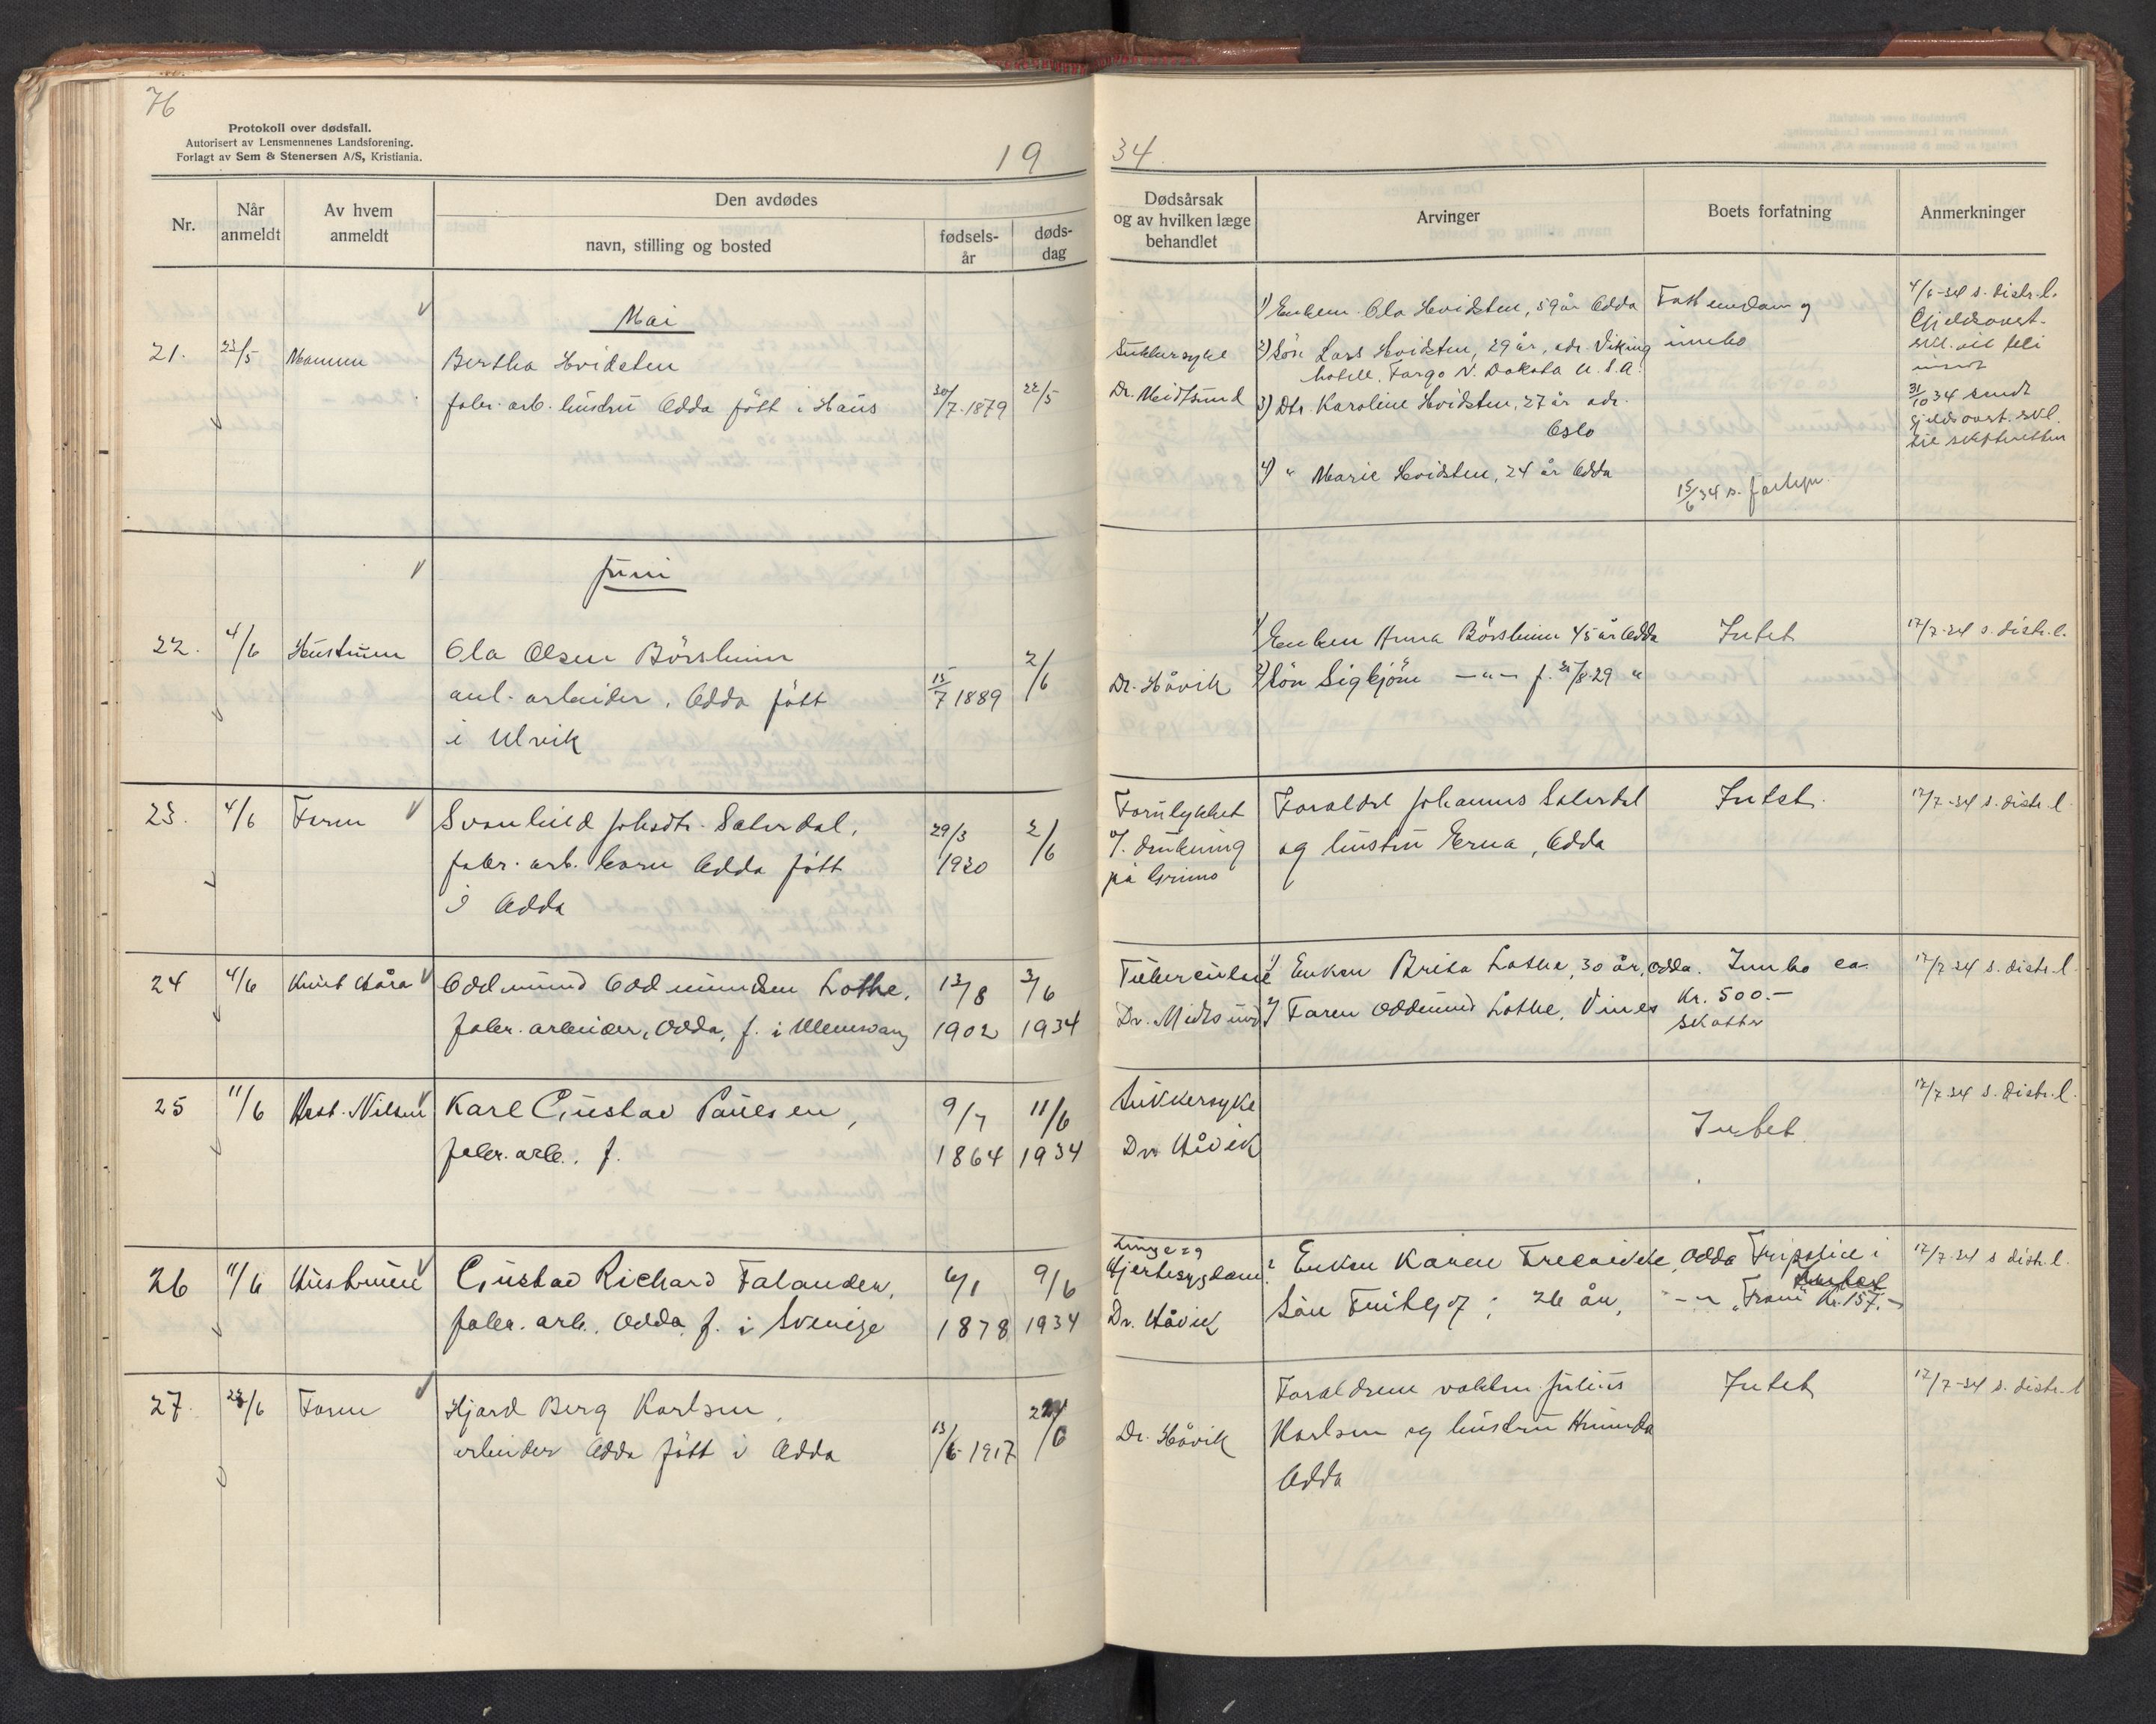 76
Protokoll over dødsfall.
Autorisert av Lensmennenes Landsforening.
Forlagt av Sem & Stenersen A/S, Kristiania.
19
34
Nr.
Når anmeldt
Av hvem anmeldt
Den avdødes
navn, stilling og bosted
fødsels-
år
døds-
dag
Dødsårsak
og av hvilken læge
behandlet
Arvinger
Boets forfatning
Anmerkninger
Mai
21. 23/5 Mannen Bertha Hvidsten
fabr. arb. hustru Odda født i Haus 30/7-1879 22/5
Sukkersyke
Dr. Meidtsund
1) Enkem. Ola Hvidsten, 59 år Odda
2) Søn Lars Hvidsten, 29 år, adr. Viking
hotell, Fargo N. Dakota U.S.A.
3) Dtr. Karoline Hvidsten, 27 år adr.
Oslo
4) " Marie Hvidsten, 24 år Odda
Fast eiendom og
innbo
15/6 34 s.
4/6-34 s. distr. l.
Gjeldsovert.
31/10 34 sendt
gjeldsovert. skl.
til skifteretten
Juni
22. 4/6 Hustruen Ola Olsen Börsheim
anl. arbeider, Odda født
i Ulvik
15/7 1889 2/6
Dr. Håvik
1) Enken Anna Börsheim 45 år Odda
2) Søn Sigbjörn —"— f. 21/8-29 "
Intet
17/7-34 s. distr. l.
23. 4/6 Faren Svanhild Johsdtr. Saterdal,
fabr. arb. barn Odda født
i Odda
29/3
1920
2/6
Forulykket
v/ drukning
på Grimo
Foreldel Johannes Saterdal
og hustru Erna, Odda
Intet.
17/7-34 s. distr. l.
24 4/6 Knut Aåra Oddmund Oddmundsen Lothe,
fabr. arbeider, Odda, f. i Ullensvang
12/8
1902
3/6
1934
Tuberculose
Dr. Midtsund
1) Enken Brita Lothe, 30 år, Odda.
2) Faren Oddmund Lothe, Vines
Innbo ca.
Kr. 500.—
skatter
17/7-34 s. distr. l.
25 11/6 Best. Nilsen Karl Gustav Paulsen,
fabr. arb., f.
9/7
1864
11/6
1934
Sukkersyke
Dr. Håvik
Intet.
17/7-34 s. distr. l.
26 11/6 Hustruen Gustav Richard Falander,
fabr. arb., Odda, f. i Sverige
6/1
1878
9/6
1934
Lunge og
Hjertesygdom
Dr. Håvik
Enken Karen Fredrikke, Odda
Søn Fritjof, 26 år, —"—
Fripolise i
"Fram" Kr. 157.—
17/7-34 s distr. l.
27. 23/6 Faren Hjard Berg Karlsen,
arbeider Odda født i Odda
13/6-1917 22/6
Dr. Håvik
Foreldrene vakten Julius
Karlsen og hustru Amunda
Odda
Intet
17/7-34 s. distr. l